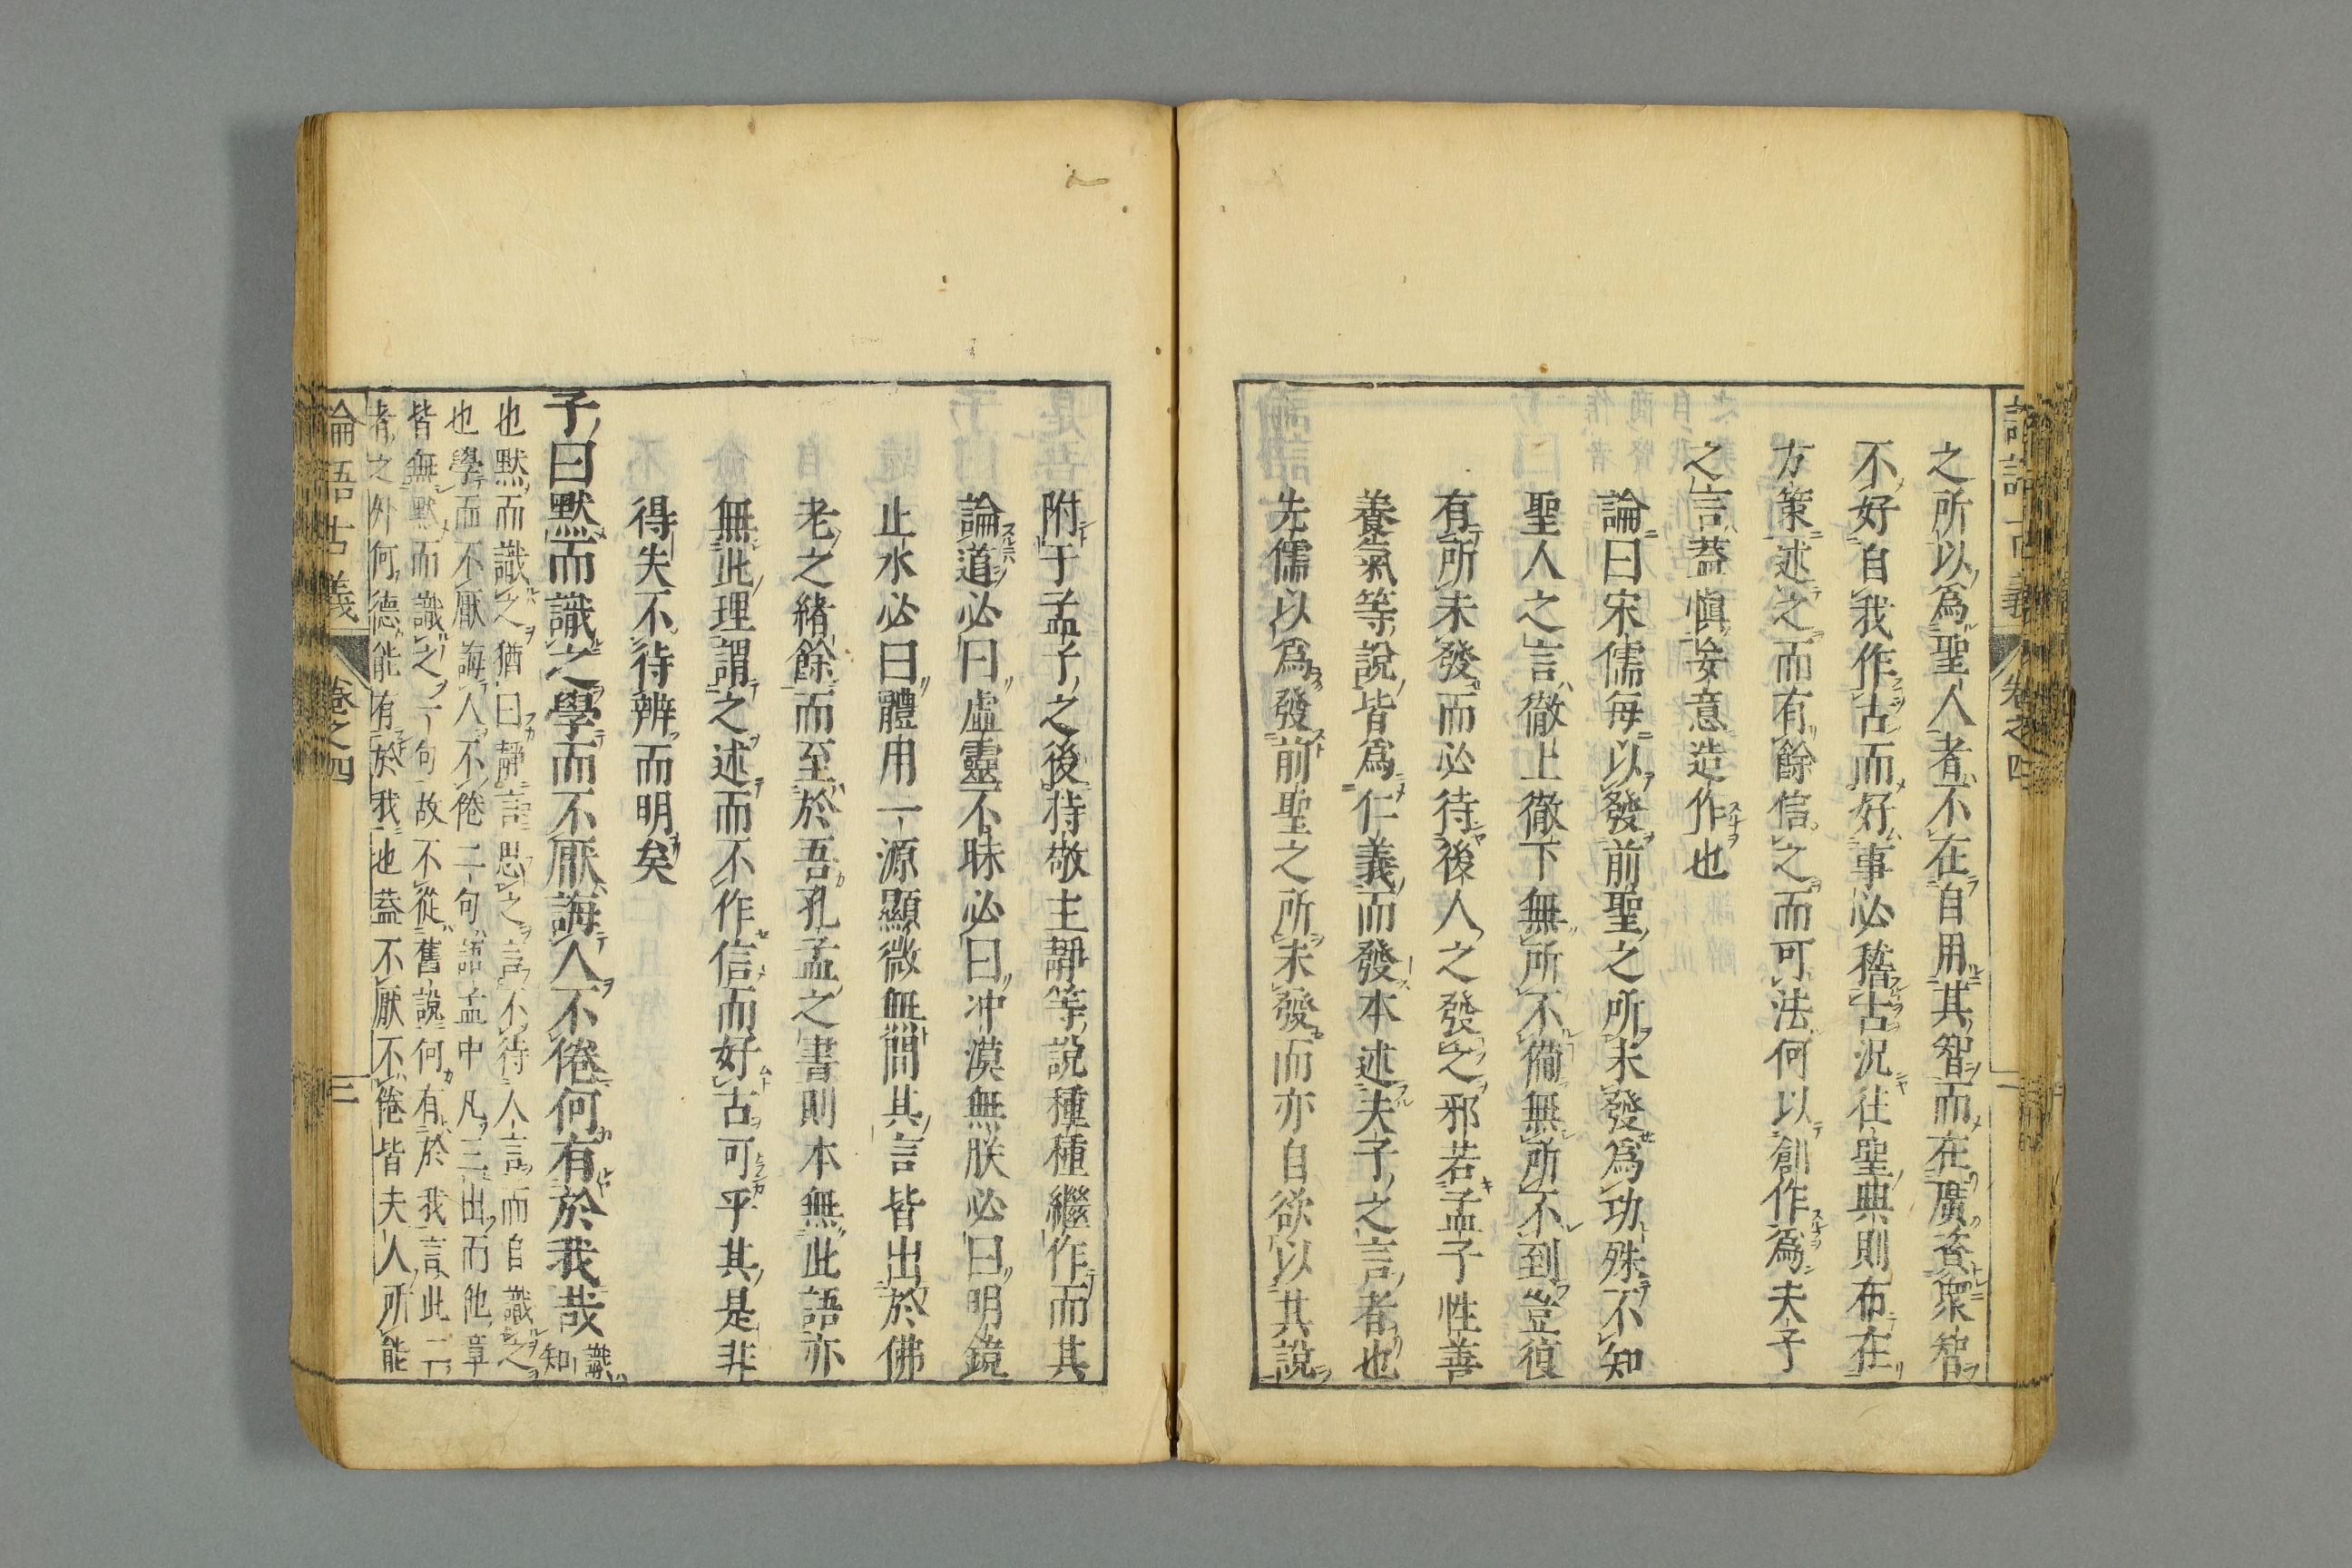 之所以爲聖人者不在自用其智而在廣資衆智
不好自我作古而好事必稽古況往聖典則布在
方策述之而有餘信之而可法何以創作爲夫子
之言蓋愼妄意造作也
論曰宋儒每以發前聖之所未發爲功殊不知
聖人之言徹上徹下無所不備無所不到豈復
有所未發而必待後人之發之邪若孟子性善
養氣等說皆爲仁義而發本述夫子之言者也
先儒以爲發前聖之所未發而亦自欲以其說
附于孟子之後持敬主靜等說種種繼作而其
論道必曰虛靈不昧必曰冲漠無朕必曰明鏡
止水必曰體用一源顯微無間其言皆出於佛
老之緒餘而至於吾孔孟之書則本無此語亦
無此理謂之述而不作信而好古可乎其是非
得失不待辨而明矣
子曰默而識之學而不厭誨人不倦何有於我哉識知
也默而識之猶曰靜言思之言不待人言而自識之
也學而不厭誨人不倦二句語孟中凡三出而他章
皆無默而識之一句故不從舊說何有於我言此二
者之外何德能有於我也蓋不厭不倦皆夫人所能
論語古義
卷之四
三